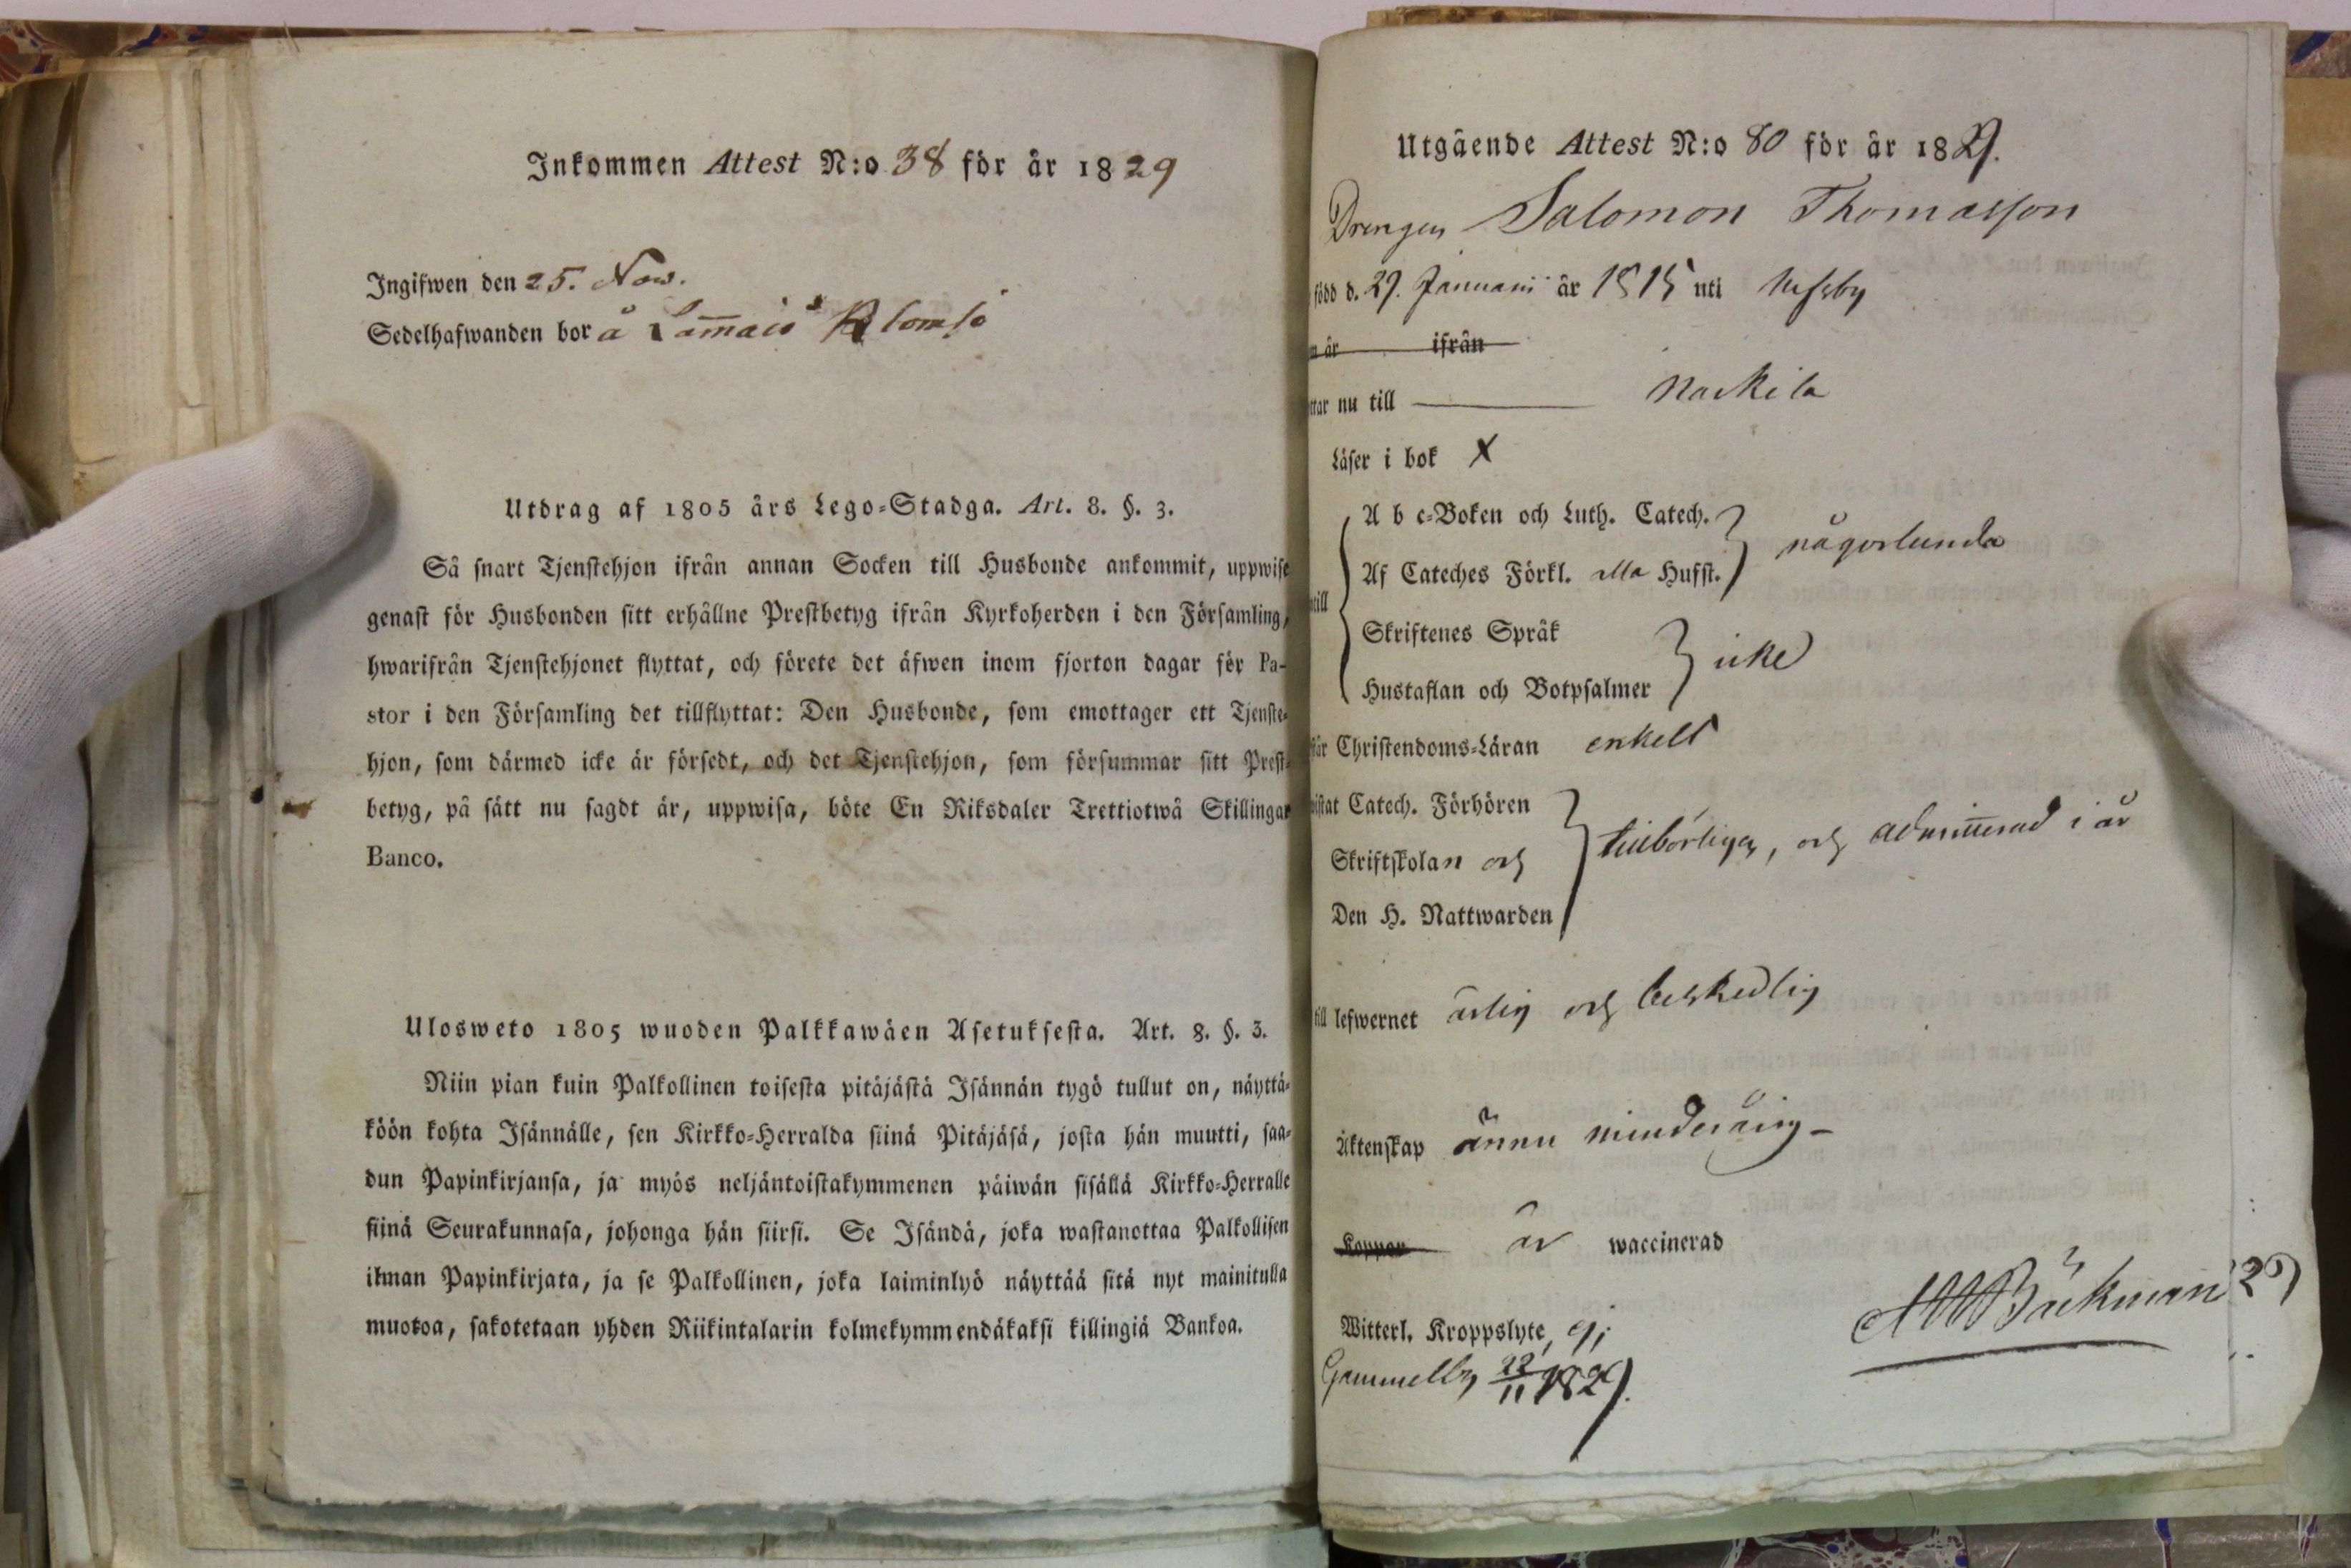 Inkommen Attest N:o 38 för år 1829
Ingifwen den 25. Nov.
Sedelhafwanden bor å
Utdrag af 1805 års Lego-Stadga. Art. 8. §. 3.
Så snart Tjenstehjon ifrån annan Socken till Husbonde ankommit, uppwise
genast för Husbonden sitt erhållne Prestbetyg ifrån Kyrkoherden i den Församling,
hwarifrån Tjenstehjonet flyttat, och förete det äfwen inom fjorton dagar för Pa-
stor i den Församling det tillflyttat: Den Husbonde, som emottager ett Tjenste-
hjon, som därmed icke är försedt, och det Tjenstehjon, som försummar sitt Prest-
betyg, på sätt nu sagdt är, uppwisa, böte En Riksdaler Trettiotwå Skillingar
Banco.
Ulosweto 1805 wuoden Palkkawäen Asetuksesta. Art. 8. §. 3.
Niin pian kuin Palkollinen toisesta pitäjästä Isännän tygö tullut on, näyttä-
köön kohta Isännälle, sen Kirkko-Herralda siinä Pitäjäsä, josta hän muutti, saa-
dun Papinkirjansa, ja myös neljäntoistakymmenen päiwän sisällä Kirkko-Herralle
siinä Seurakunnasa, johonga hän siirsi. Se Isändä, joka wastanottaa Palkollisen
ilman Papinkirjata, ja se Palkollinen, joka laiminlyö näyttää sitä nyt mainitulla
muotoa, sakotetaan yhden Riikintalarin kolmekymmendäkaksi killingiä Bankoa.
Utgående Attest N:o 80 för år 1829.
Drengen Salomon Thomasson
född d. 29. Januarii år 1815 uti
är ifrån
ttar nu till Nackila
Läser i bok X
till
A b c-Boken och Luth. Catech.
Af Cateches Förkl. alla Husst.
någorlunda
Skriftenes Språk
Hustaflan och Botpsalmer
icke
Christendoms-Läran enkelt
istat Catech. Förhören
Skriftskolan och
Den H. Nattwarden
tillbörligen, och admitterad i år
till lefwernet ärlig och beskedlig
Äktenskap ännu minderårig
Koppor är waccinerad
Witterl. Kroppslyte, ej.
Gammelby 22/11 1829.
Bäckman